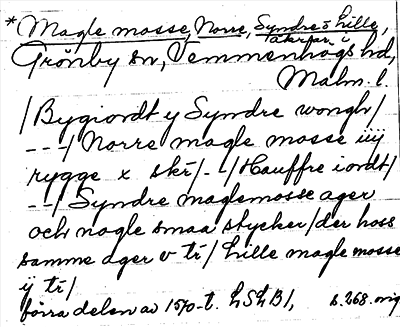 *Magle mosse, Norre, Syndre o Lille,
åkrar i
Grönby sn, Vemmenhögs hd,
Malm. l.
/Bygiordt y Syndre wongh/
---/Norre magle mosse iiij
rygge x skr/--/Hauffre iordt/
--/Syndre maglemosse ager
och nogle smaa stycker/der hoss
samme ager v tr/Lille magle mosse
ij tr/
förra delen av 1570-t. LSLB1, s.268.orig